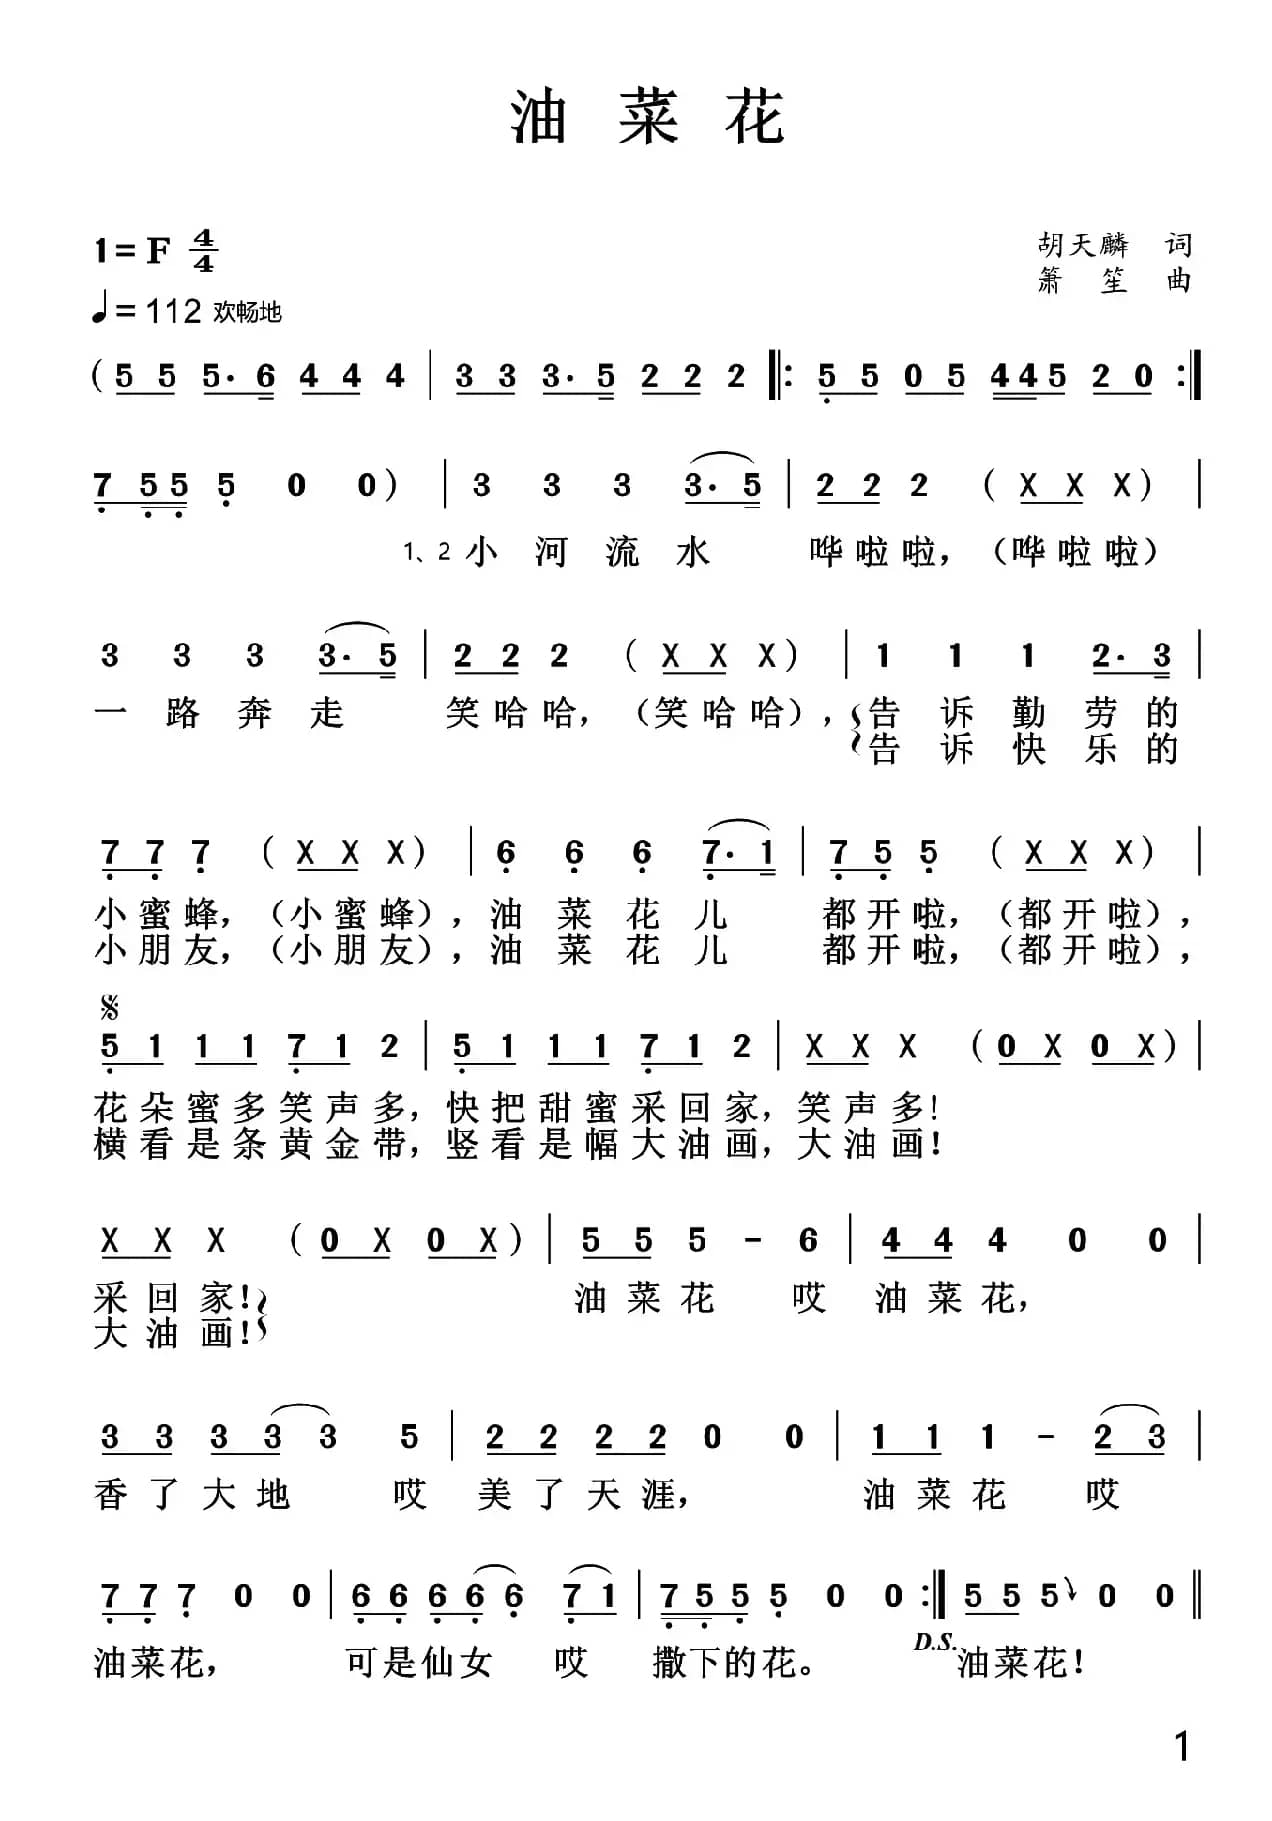 油菜花
1=F 4/4
胡天麟 词
箫 笙 曲
♩=112 欢畅地
(5 5 5· 6 4 4 4 | 3 3 3· 5 2 2 2 ‖: 5 5 0 5 4 4 5 2 0 :‖
7 5 5 5 0 0) | 3 3 3 3· 5 | 2 2 2 (X X X) |
1、2 小河流水 哗啦啦，（哗啦啦）
3 3 3 3· 5 | 2 2 2 (X X X) | 1 1 1 2· 3 |
一路奔走 笑哈哈，（笑哈哈），告诉勤劳的
告诉快乐的
7 7 7 (X X X) | 6 6 6 7· 1 | 7 5 5 (X X X) |
小蜜蜂，（小蜜蜂），油菜花儿 都开啦，（都开啦），
小朋友，（小朋友），油菜花儿 都开啦，（都开啦），
5 1 1 1 7 1 2 | 5 1 1 1 7 1 2 | X X X (0 X 0 X) |
花朵蜜多笑声多，快把甜蜜采回家，笑声多！
横看是条黄金带，竖看是幅大油画，大油画！
X X X (0 X 0 X) | 5 5 5 - 6 | 4 4 4 0 0 |
采回家！ 油菜花 哎 油菜花，
大油画！
3 3 3 3 3 5 | 2 2 2 2 0 0 | 1 1 1 - 2 3 |
香了大地 哎 美了天涯， 油菜花 哎
7 7 7 0 0 | 6 6 6 6 6 7 1 | 7 5 5 5 0 0 :‖ 5 5 5 0 0 ‖
油菜花， 可是仙女 哎 撒下的花。 D.S. 油菜花！
1